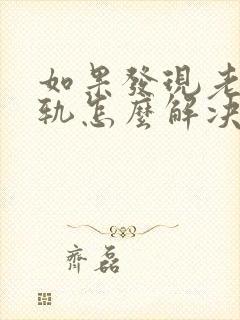 如果發現老
軌怎麼解決
齊磊